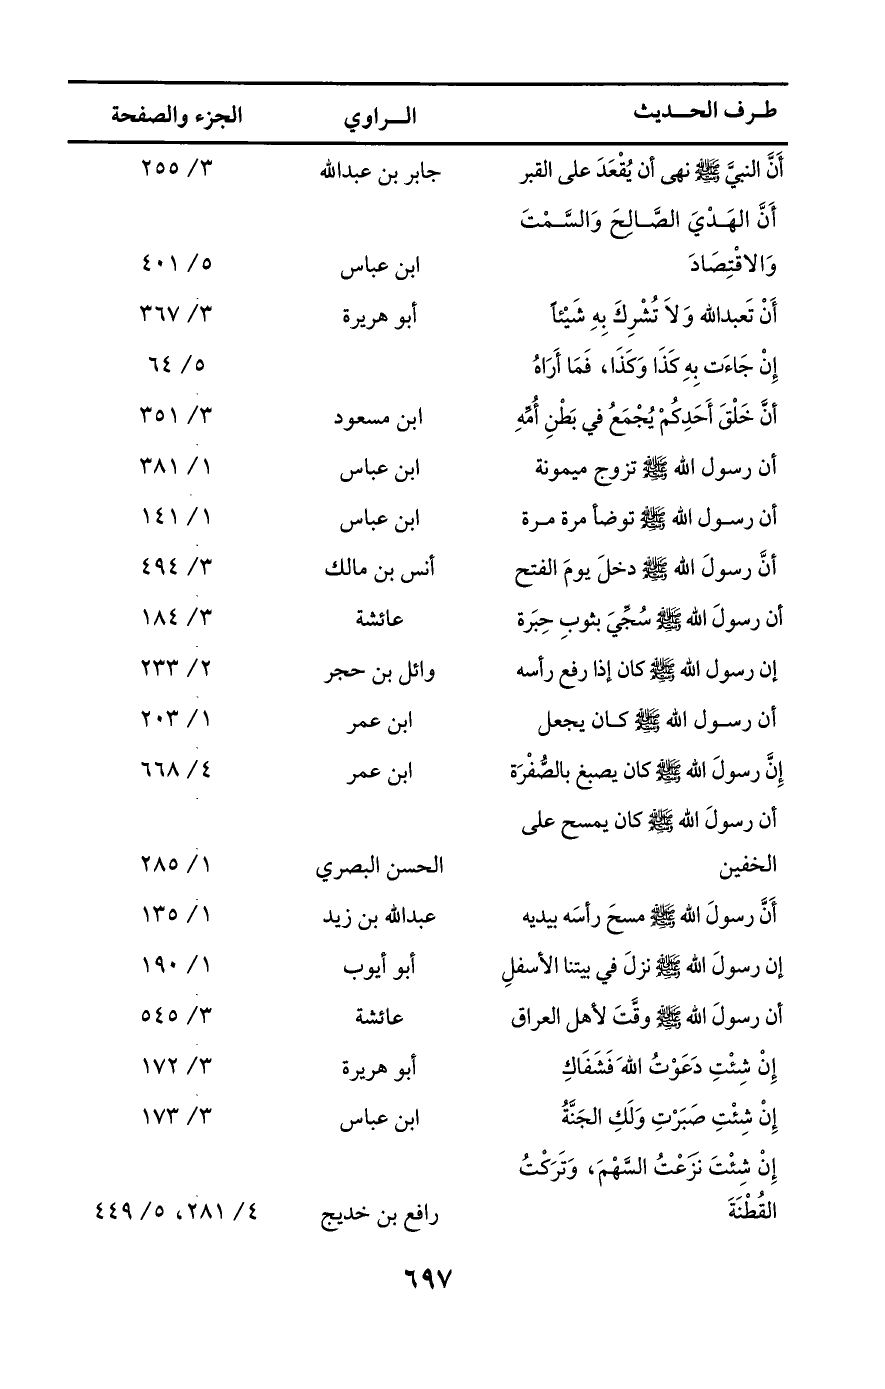 طـرف الحــديث الــراوي الجزء والصفحة
أَنَّ النبيَّ ﷺ نهى أن يُقْعَدَ على القبر جابر بن عبدالله ٣/ ٢٥٥
أَنَّ الهَـدْيَ الصَّـالِحَ وَالسَّـمْتَ
وَالاقْتِصَادَ ابن عباس ٥/ ٤٠١
أَنْ تَعبدالله وَلاَ تُشْرِكَ بِهِ شَيْئاً أبو هريرة ٣/ ٣٦٧
إِنْ جَاءَت بِهِ كَذَا وَكَذَا، فَمَا أَرَاهُ ٥/ ٦٤
أنَّ خَلْقَ أَحَدِكُمْ يُجْمَعُ في بَطْنِ أُمِّهِ ابن مسعود ٣/ ٣٥١
أن رسول الله ﷺ تزوج ميمونة ابن عباس ١/ ٣٨١
أن رسـول الله ﷺ توضأ مرة مـرة ابن عباس ١/ ١٤١
أنَّ رسولَ الله ﷺ دخلَ يومَ الفتح أنس بن مالك ٣/ ٤٩٤
أن رسولَ الله ﷺ سُجِّيَ بثوبِ حِبَرة عائشة ٣/ ١٨٤
إن رسول الله ﷺ كان إذا رفع رأسه وائل بن حجر ٢/ ٢٣٣
أن رسـول الله ﷺ كـان يجعل ابن عمر ١/ ٢٠٣
إِنَّ رسولَ الله ﷺ كان يصبغ بالصُّفْرَة ابن عمر ٤/ ٦٦٨
أن رسولَ الله ﷺ كان يمسح على
الخفين الحسن البصري ١/ ٢٨٥
أَنَّ رسولَ الله ﷺ مسحَ رأسَه بيديه عبدالله بن زيد ١/ ١٣٥
إن رسولَ الله ﷺ نزلَ في بيتنا الأسفلِ أبو أيوب ١/ ١٩٠
أن رسولَ الله ﷺ وقَّتَ لأهل العراق عائشة ٣/ ٥٤٥
إِنْ شِئْتِ دَعَوْتُ اللهَ فَشَفَاكِ أبو هريرة ٣/ ١٧٢
إِنْ شِئْتِ صَبَرْتِ وَلَكِ الجَنَّةُ ابن عباس ٣/ ١٧٣
إِنْ شِئْتَ نَزَعْتُ السَّهْمَ، وَتَرَكْتُ
القُطْنَةَ رافع بن خديج ٤/ ٢٨١، ٥/ ٤٤٩
٦٩٧